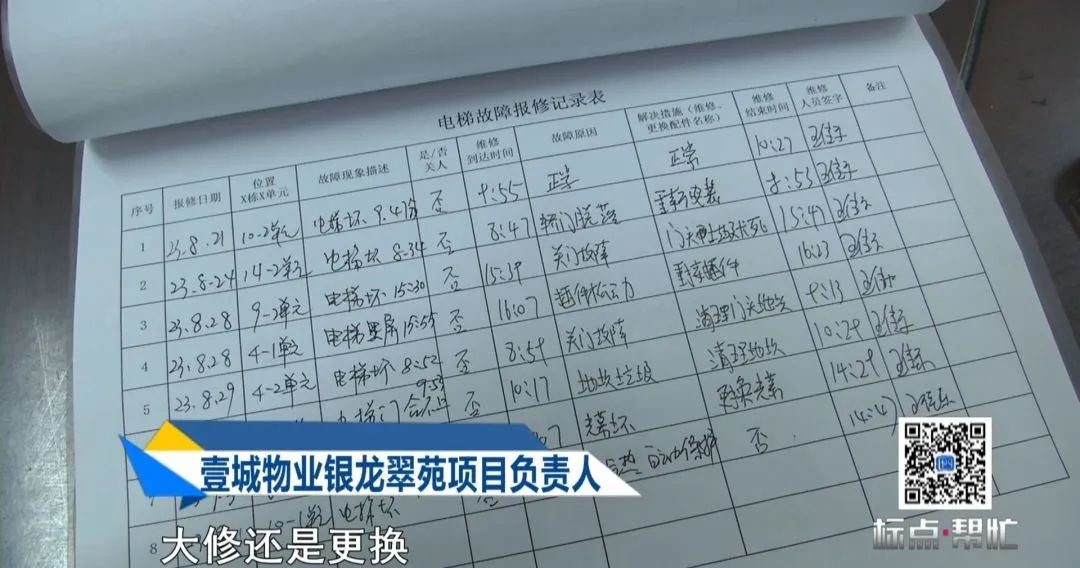 电梯故障报修记录表
序号 报修日期 位置X栋X单元 故障现象描述 是/否关人 维修到达时间 故障原因 解决措施（维修、更换配件名称） 维修结束时间 维修人员签字 备注
1 23.8.21 10-2单元 电梯坏 9.47分 否 9:55 正常 正常 10:27
2 23.8.24 14-2单元 电梯坏 8:34 否 8:47 轿门脱落 8:53
3 23.8.28 9-2单元 电梯坏 15:30 否 15:39 关门故障 15:47
4 23.8.28 4-1单元 电梯黑屏 15:55 否 16:07 插件松动 16:23
5 23.8.29 4-2单元 电梯坏 8:52 否 8:59 关门故障 清理门关地坎 9:13
电梯门合不上 9:55 否 10:17 地坎垃圾 清理地坎 10:29
光幕坏 更换光幕 14:29
8 10-1单元 电梯坏 否 自动保护 否 14:47
壹城物业银龙翠苑项目负责人
大修还是更换
标点·帮忙